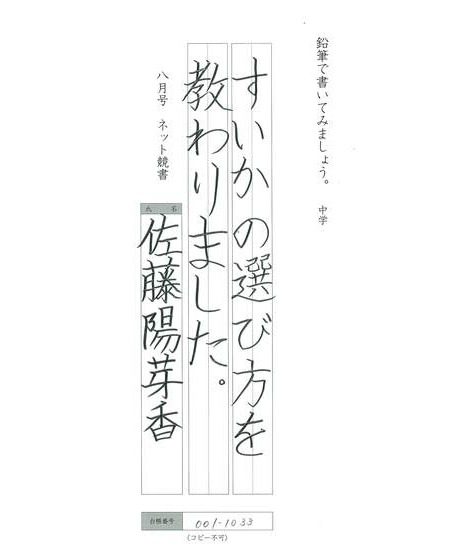 鉛筆で書いてみましょう。 中学
すいかの選び方を
教わりました。
八月号 ネット競書
氏名
佐藤陽芽香
台帳番号 001-1033
(コピー不可)